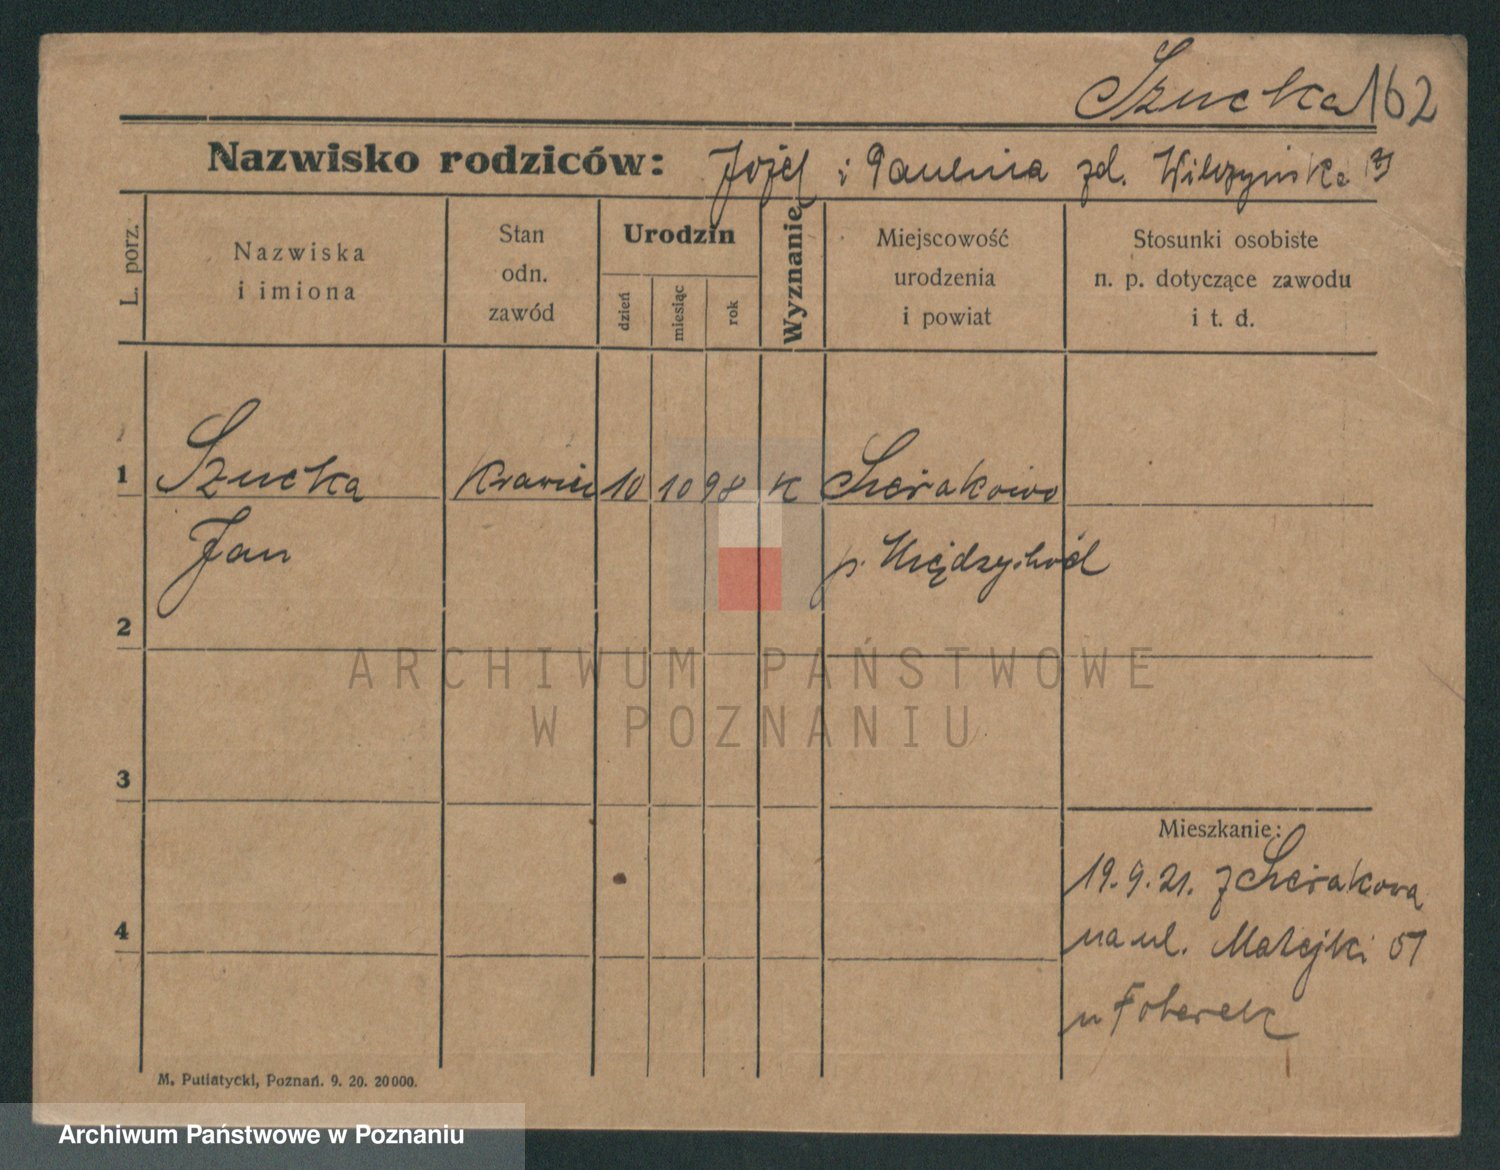 Szucka 162
Nazwisko rodziców: Józef i Paulina zd. Wilczyńska
L. porz.
Nazwiska
i imiona
Stan
odn.
zawód
Urodzin
dzień
miesiąc
rok
Wyznanie
Miejscowość
urodzenia
i powiat
Stosunki osobiste
n. p. dotyczące zawodu
i t. d.
1 Szucka krawiec 10 10 98 K Sierakowo
Jan p. Międzychód
2
ARCHIWUM PAŃSTWOWE
W POZNANIU
3
Mieszkanie:
19.9.21. z Sierakowa
4
na ul. Matejki 51
u
M. Putiatycki, Poznań. 9. 20. 20000.
Archiwum Państwowe w Poznaniu